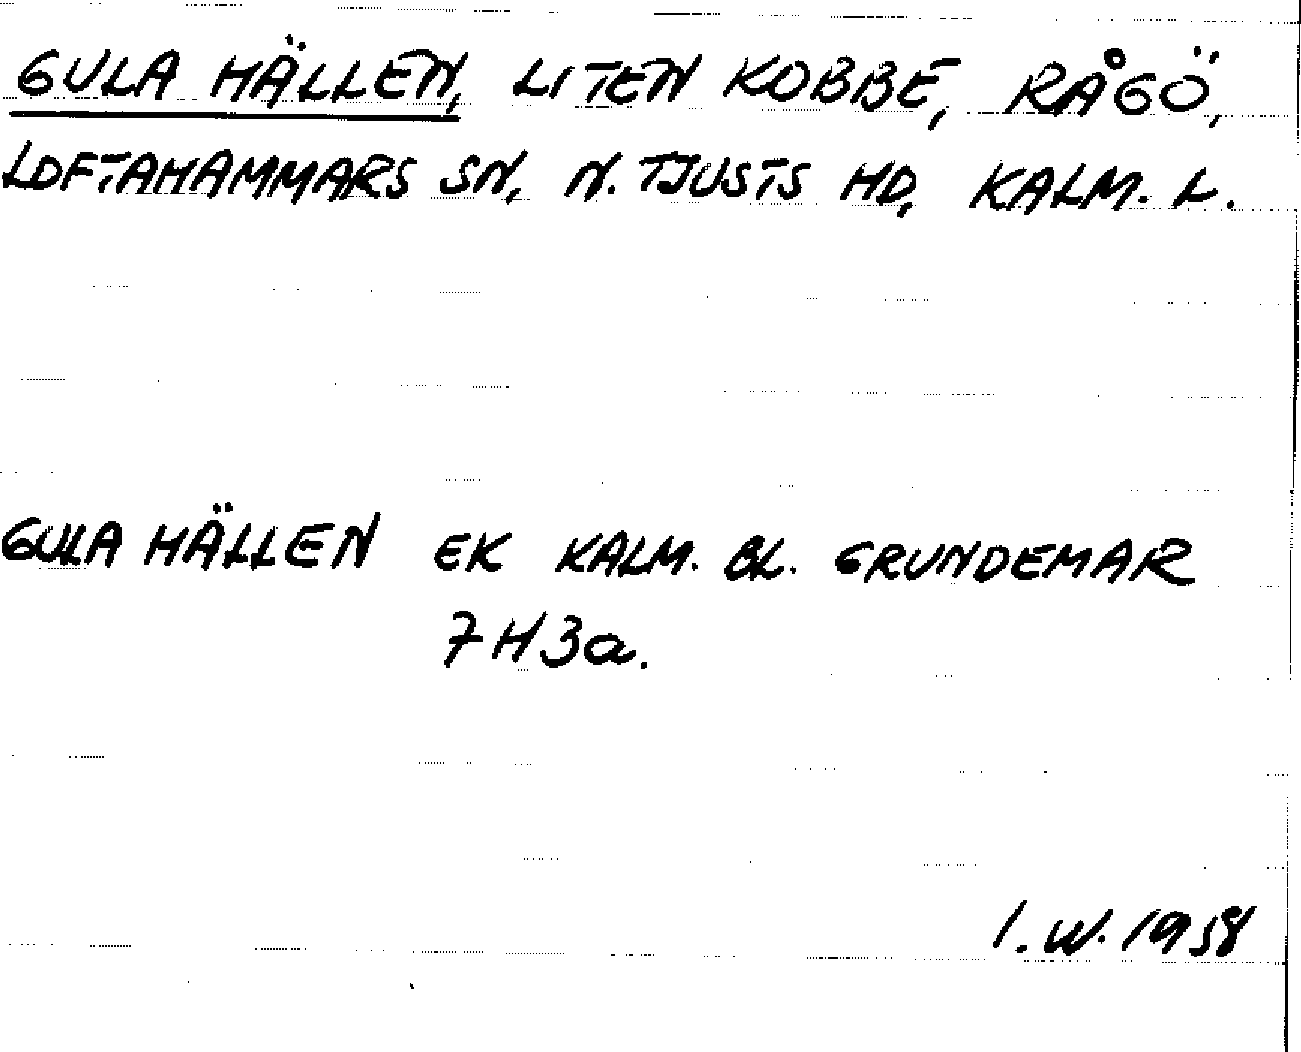 GULA HÄLLEN, LITEN KOBBE, RÅGÖ,
LOFTAHAMMARS SN, N. TJUSTS HD, KALM. L.
GULA HÄLLEN EK KALM. BL. GRUNDEMAR
7H3a.
I. W. 1958